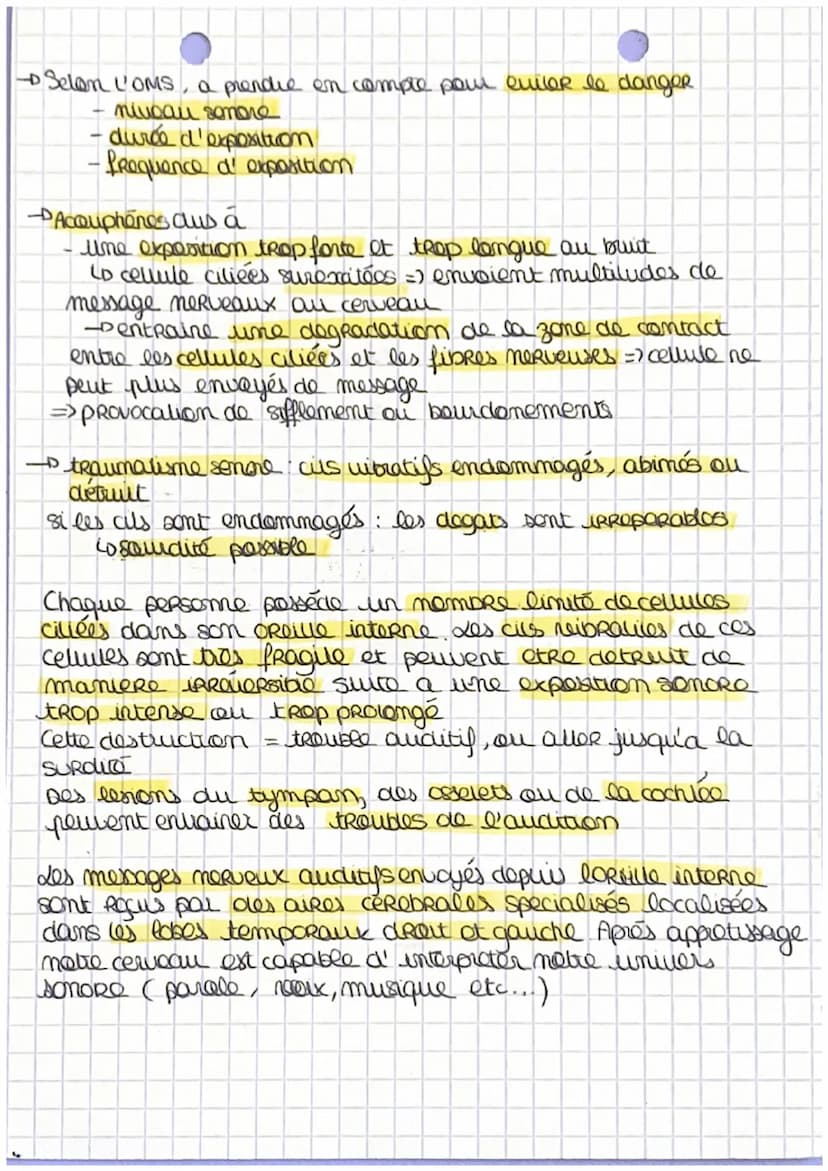 → Selon l'OMS, a prendre en compte pour eviter le danger
- niveau sonore
- durée d'exposition
- frequence d'exposition
→ Acouphènes dus à
- une exposition trop forte et trop longue au bruit
↳ cellule ciliées surexcitées => envoient multitudes de
message nerveaux au cerveau
→ entraine une degradation de la zone de contact
entre les cellules ciliées et les fibres nerveuses => cellule ne
peut plus envoyés de message
=> provocation de sifflement ou bourdonements
→ traumatisme sonore : cils vibratifs endommagés, abimés ou
détruit
si les cils sont endommagés : les degats sont irreparables
↳ sourdité possible
Chaque personne possède un nombre limité de cellules
ciliées dans son oreille interne. Les cils vibratiles de ces
cellules sont très fragile et peuvent etre detruit de
maniere irréversible suite a une exposition sonore
trop intense ou trop prolongé
Cette destruction = trouble auditif, ou aller jusqu'a la
surdité
Des lesions du tympan, des osselets ou de la cochlée
peuvent entrainer des troubles de l'audition
Les messages nerveux auditifs envoyés depuis l'oreille interne
sont reçus par des aires cérébrales specialisés localisées
dans les lobes temporaux droit et gauche Après apprentissage
notre cerveau est capable d'interpreter notre univers
sonore (parole, voix, musique etc...)